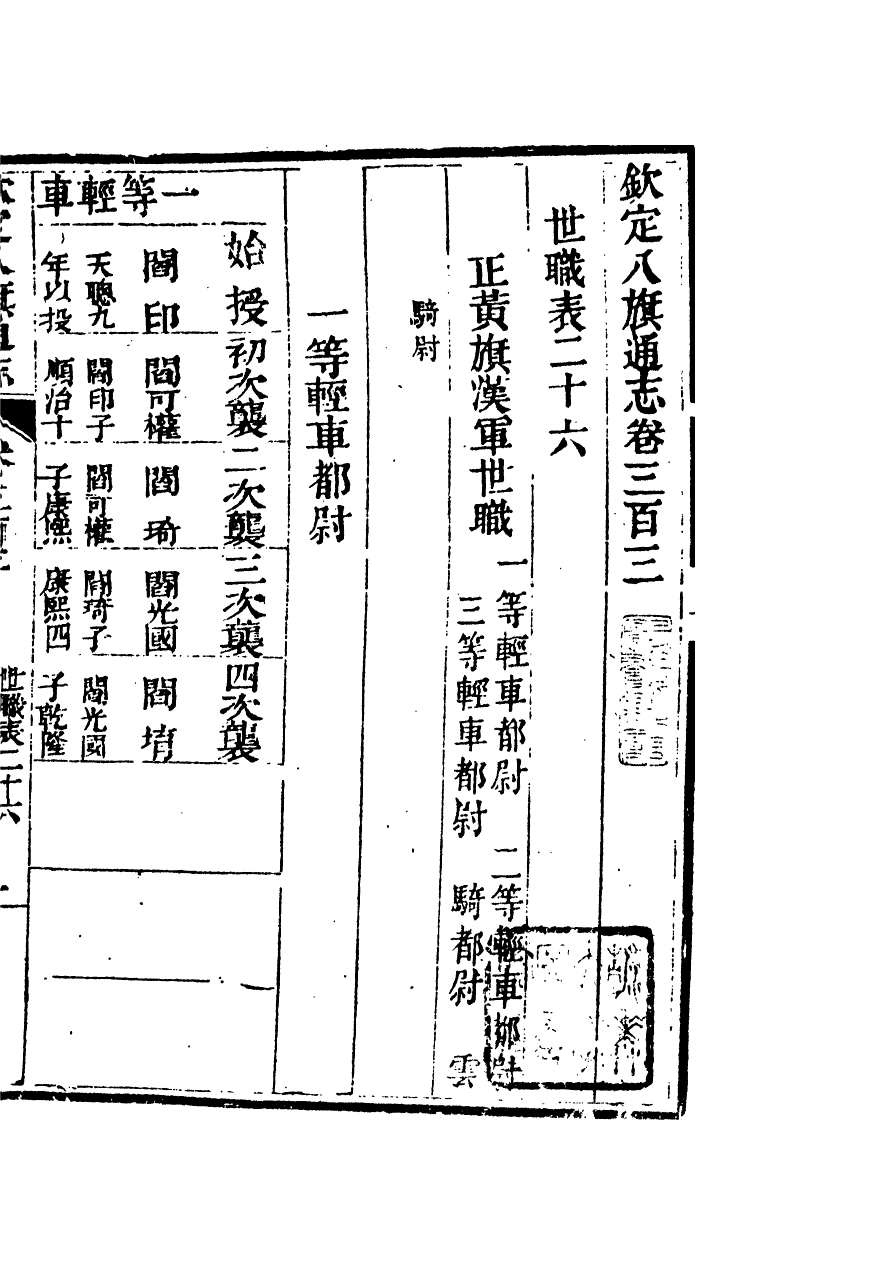 欽定八旗通志卷三百三
世職表二十六
正黃旗漢軍世職
一等輕車都尉　二等輕車都尉
三等輕車都尉　騎都尉　雲
騎尉
一等輕車都尉
始授
初次襲
二次襲
三次襲
四次襲
一等輕車
閻印
天聰九
年以投
閻可權
閻印子
順治十
閻琦
閻可權
子康熙
閻光國
閻琦子
康熙四
閻堉
閻光國
子乾隆
世職表二十六